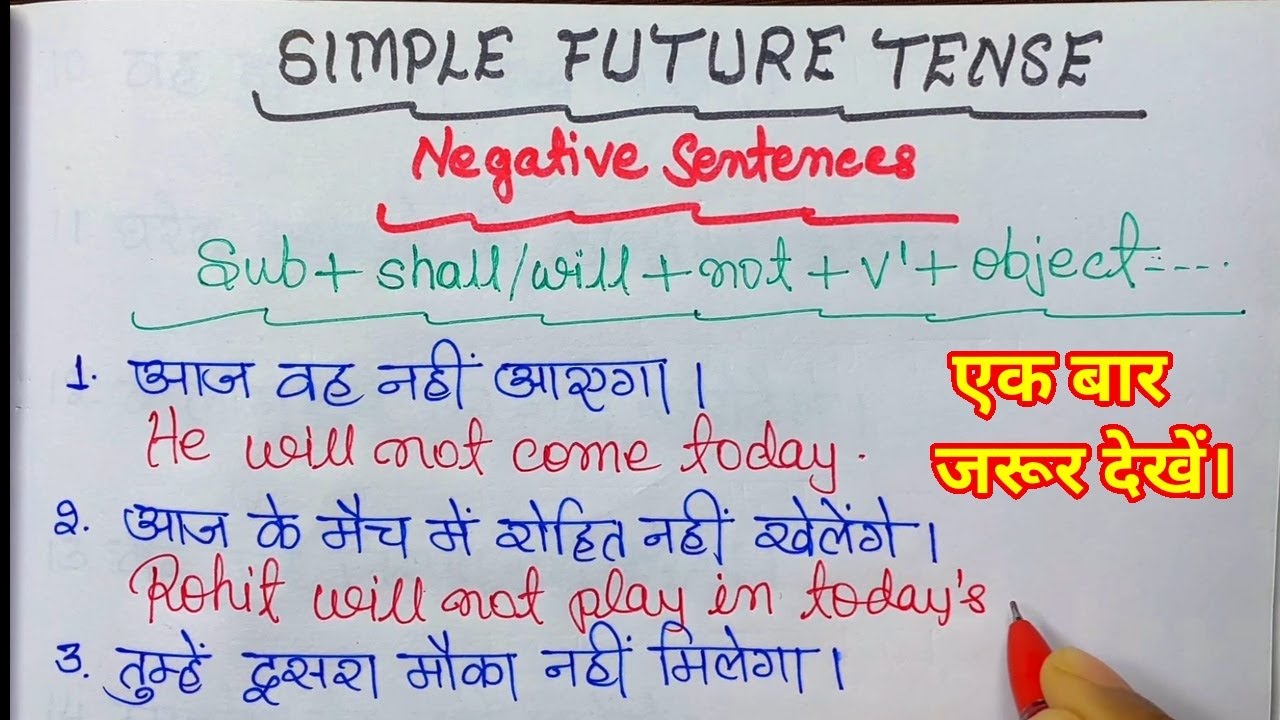 SIMPLE FUTURE TENSE
Negative Sentences
Sub + shall/will + not + V¹ + object ----
1. आज वह नहीं आएगा।
He will not come today.
एक बार
जरूर देखें।
2. आज के मैच में रोहित नहीं खेलेंगे।
Rohit will not play in today's
3. तुम्हें दूसरा मौका नहीं मिलेगा।